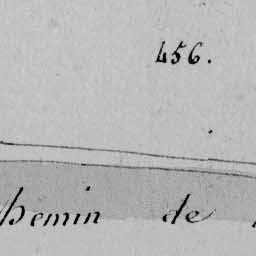 456.
Chemin de